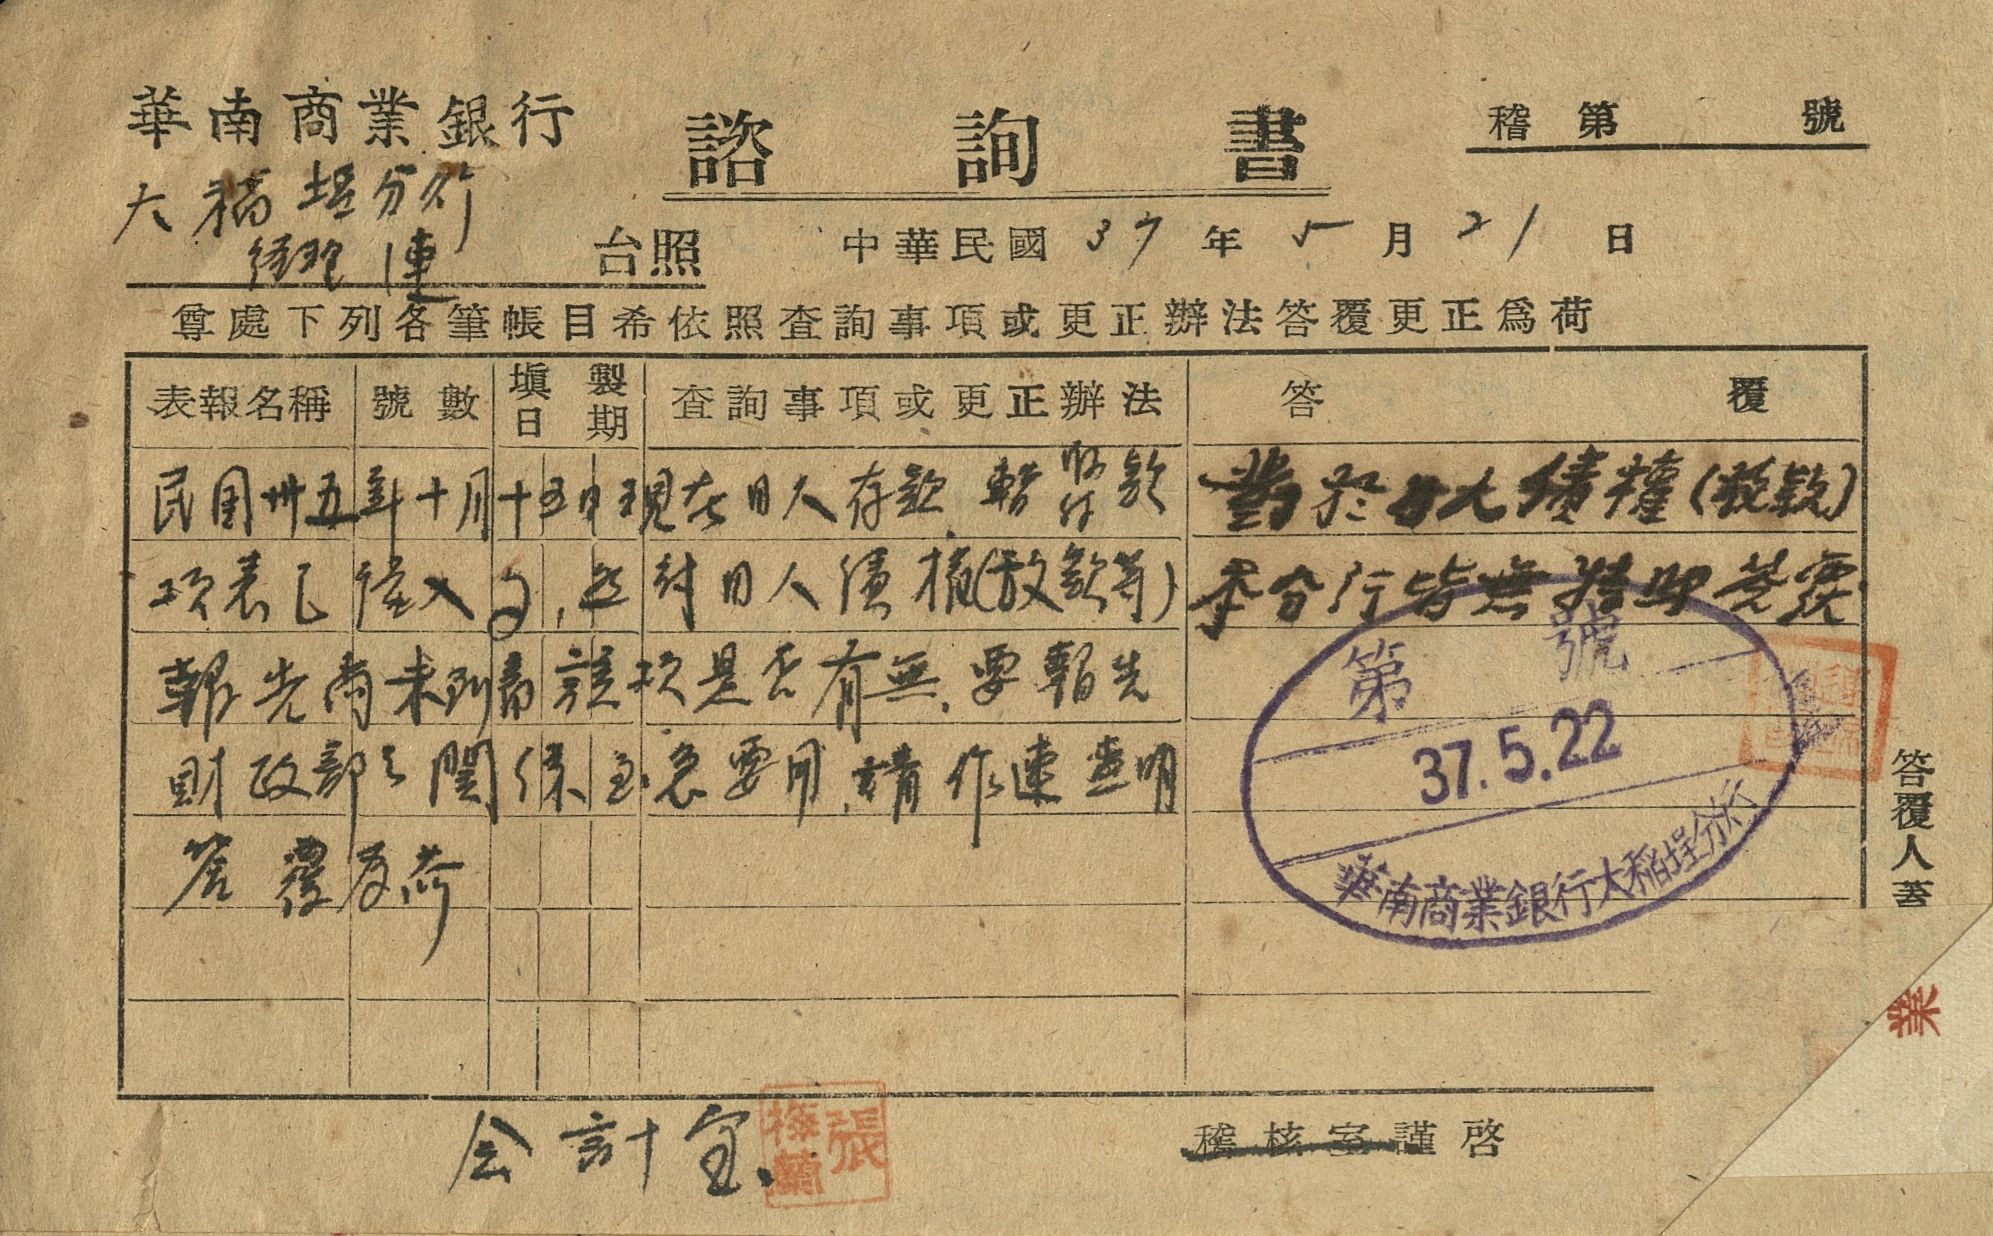 華南商業銀行
諮詢書
稽第 號
大稻埕分行
經理 連 台照
中華民國 37 年 5 月 21 日
尊處下列各筆帳目希依照查詢事項或更正辦法答覆更正爲荷
表報名稱 號數 填製日期 查詢事項或更正辦法 答覆
民国卅五年十月十五日現在日人存款、暫收付款
項表已 入 , 対日人債權(放款等)
報先尚未列 該項是否有無、要報先
財政部之関係 急要用、請作速查明
答覆為荷
對於日人債權(放款)
本分行皆無 答覆
第 號
37.5.22
華南商業銀行大稻埕分行
答覆人蓋
業
会計室
張梅蘭
稽核室謹啓